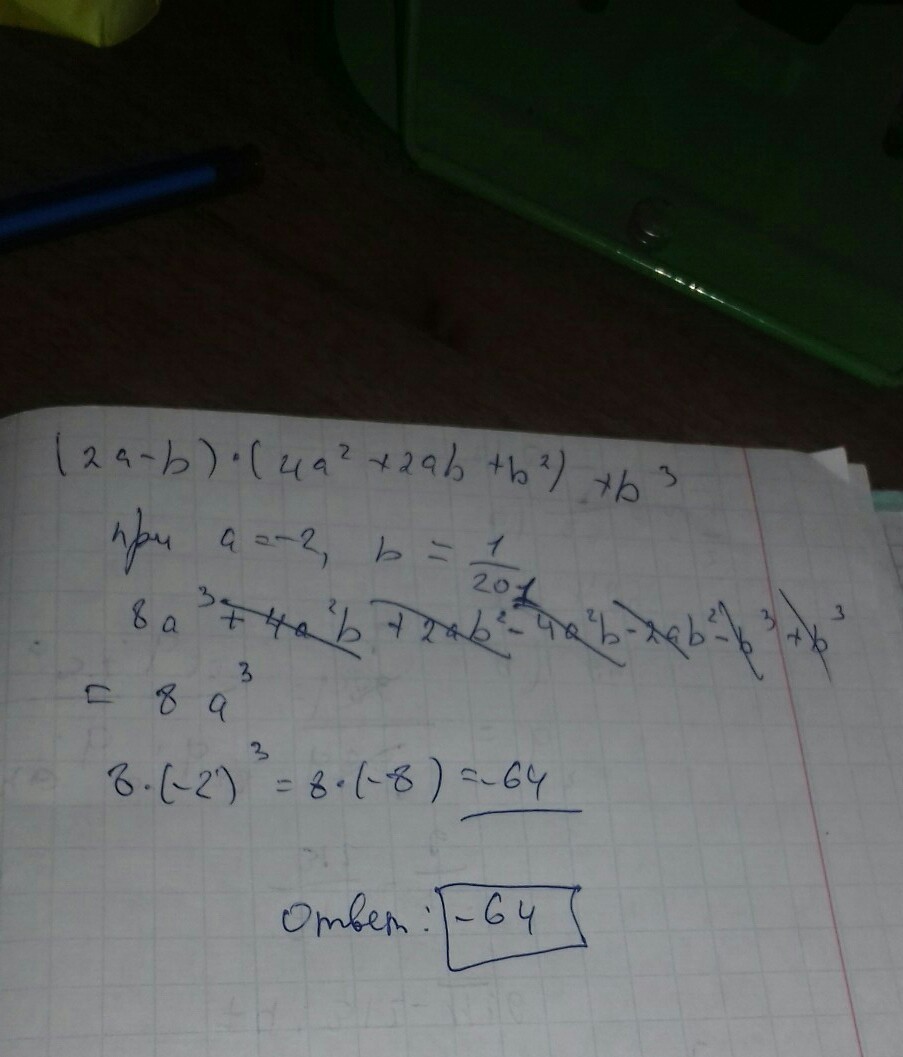 (2a-b)·(4a²+2ab+b²)+b³
при a=-2, b=1/201
8a³+4a²b+2ab²-4a²b-2ab²-b³+b³
= 8a³
8·(-2)³=8·(-8)=-64
Ответ: -64